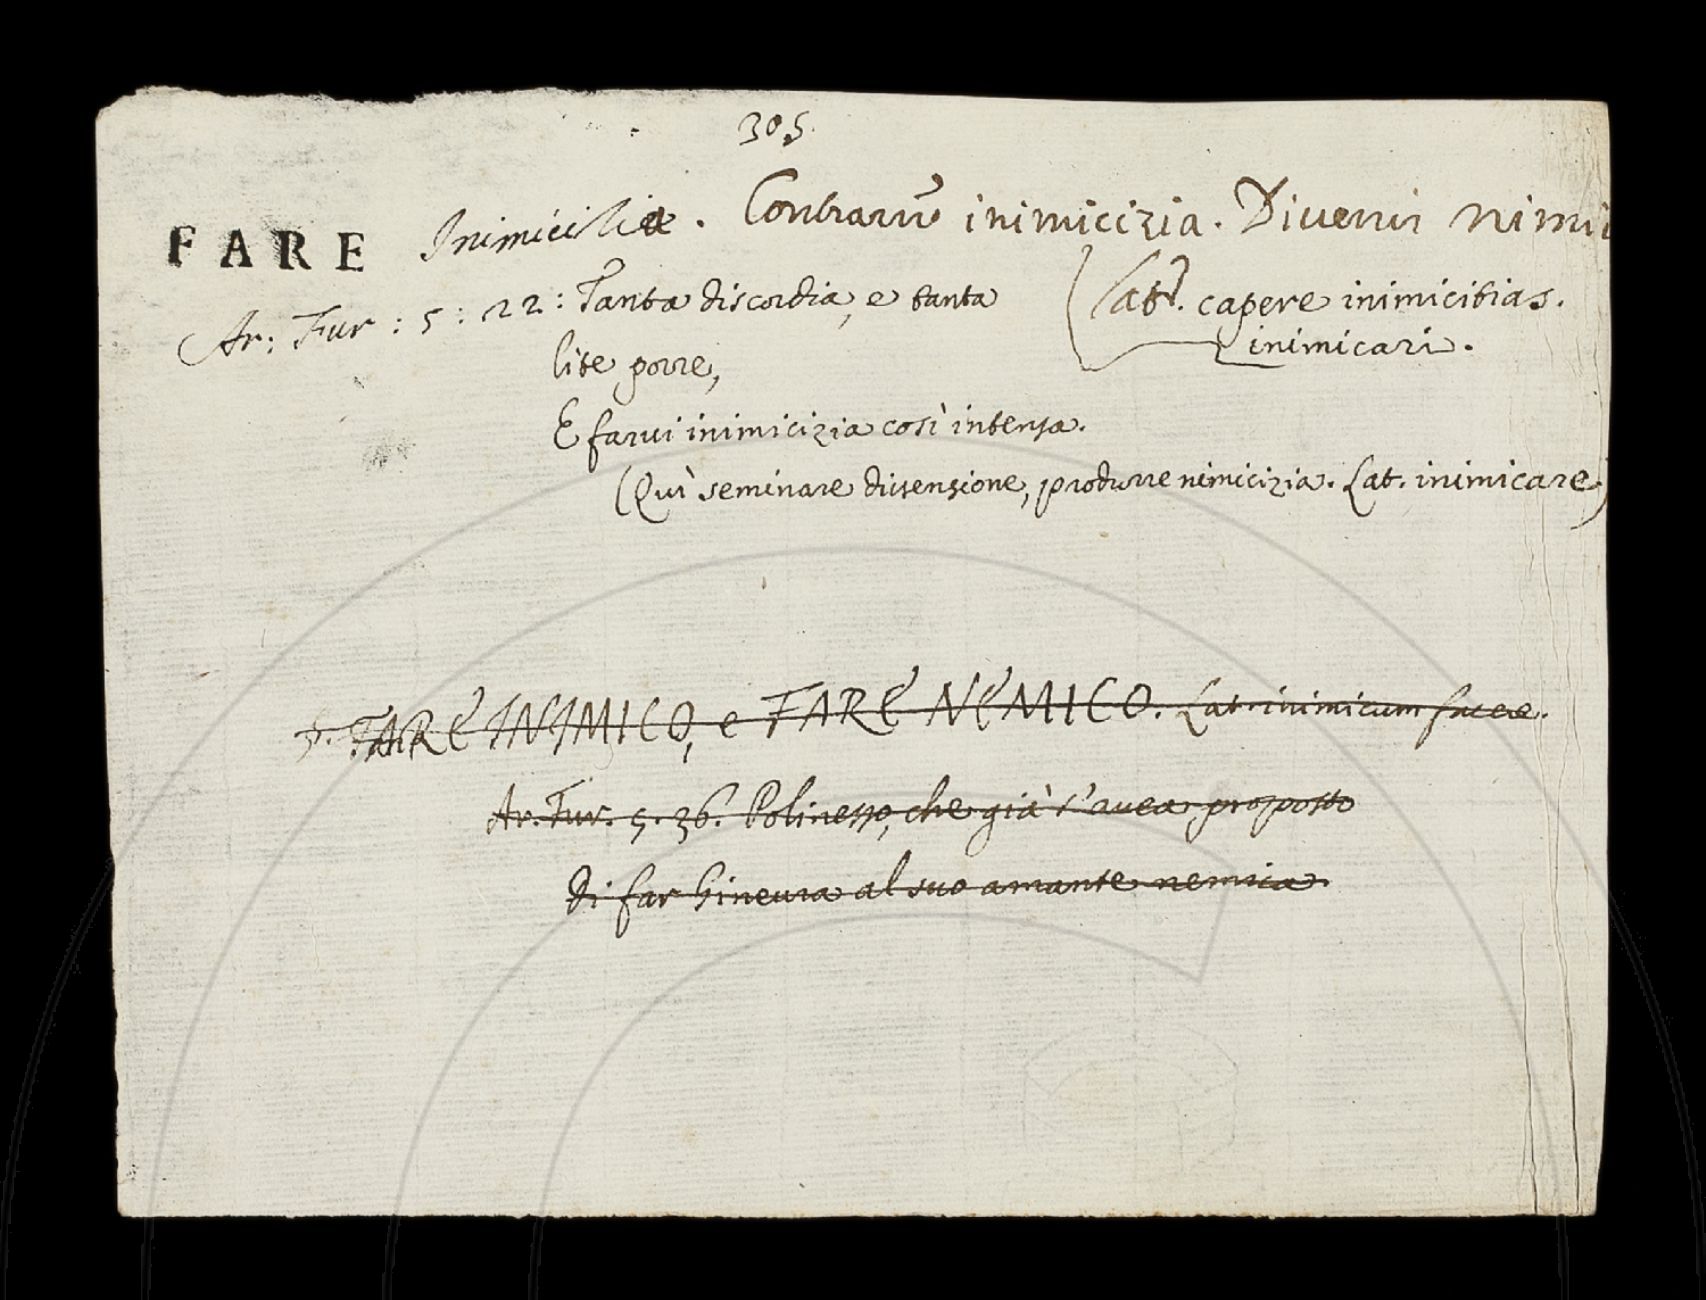 305.
FARE Inimicilia. Contrarre inimicizia. Divenir nimi
Ar: Fur: 5: 22: Tanta discordia, e tanta
lite porre,
(Lat. capere inimicitias.
inimicari.
E farvi inimicizia così intensa.
(Quì seminare dissensione, produrre nimicizia. Lat. inimicare)
§. FARE INIMICO, e FARE NEMICO. Lat. inimicum facere.
Ar. Fur. 5. 36. Polinesso, che già s'avea proposto
Di far Ginevra al suo amante nemica.